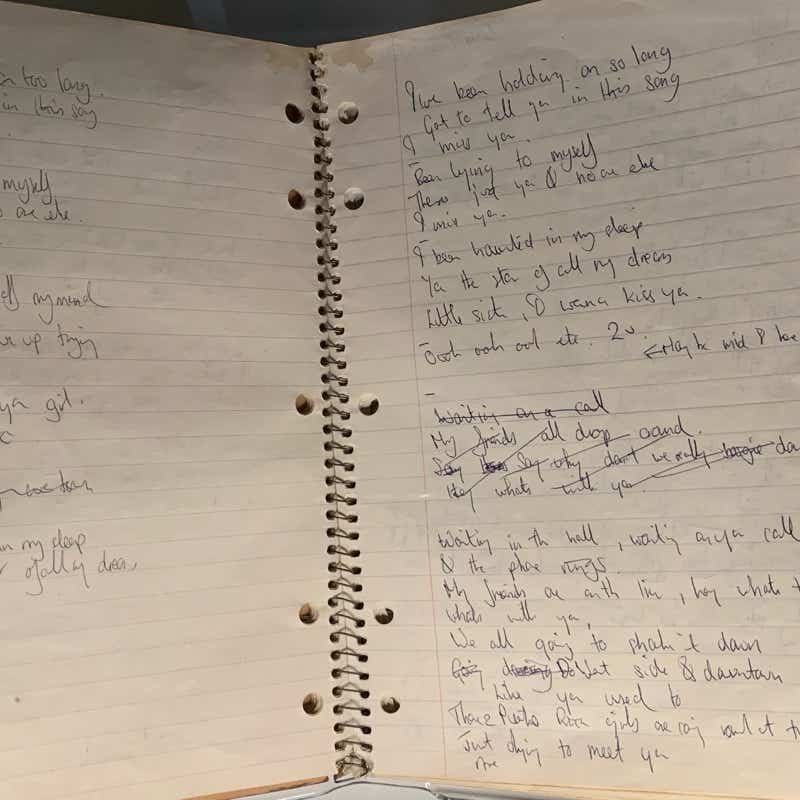 too long.
in this song
myself
one else.
my mind
up trying
ya girl.
in my sleep
of all my dreams
I've been holding on so long
Got to tell ya in this song
I miss ya
Been lying to myself
Theres just ya & no one else
I miss ya.
I been haunted in my sleep
Ya the star of all my dreams
Little side, I wanna kiss ya.
Oooh ooh ooh etc. 2
Waiting on a call
My friends all drop round.
Say Say why don't we really boogie
Hey whats with ya
Waiting in the hall, waiting on ya call
& the phone rings.
My friends are on th line, hey whats
whats with ya,
We all going to shake it down
Going West side & downtown
Like ya used to
Those Puerto Rica girls are
Just dying to meet ya